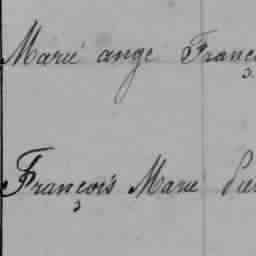 Marie ange Franç
François Marie